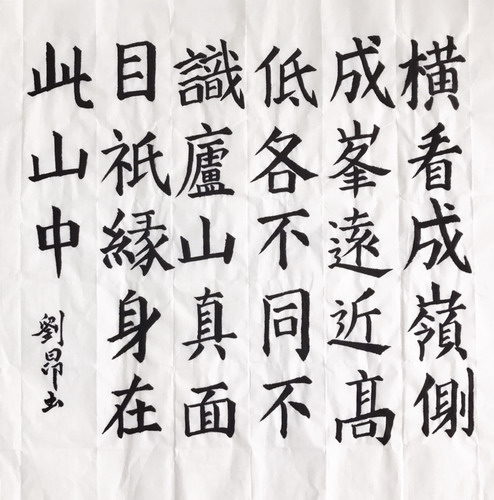 橫看成嶺側
成峯遠近髙
低各不同不
識廬山真面
目祇緣身在
此山中
劉昂书